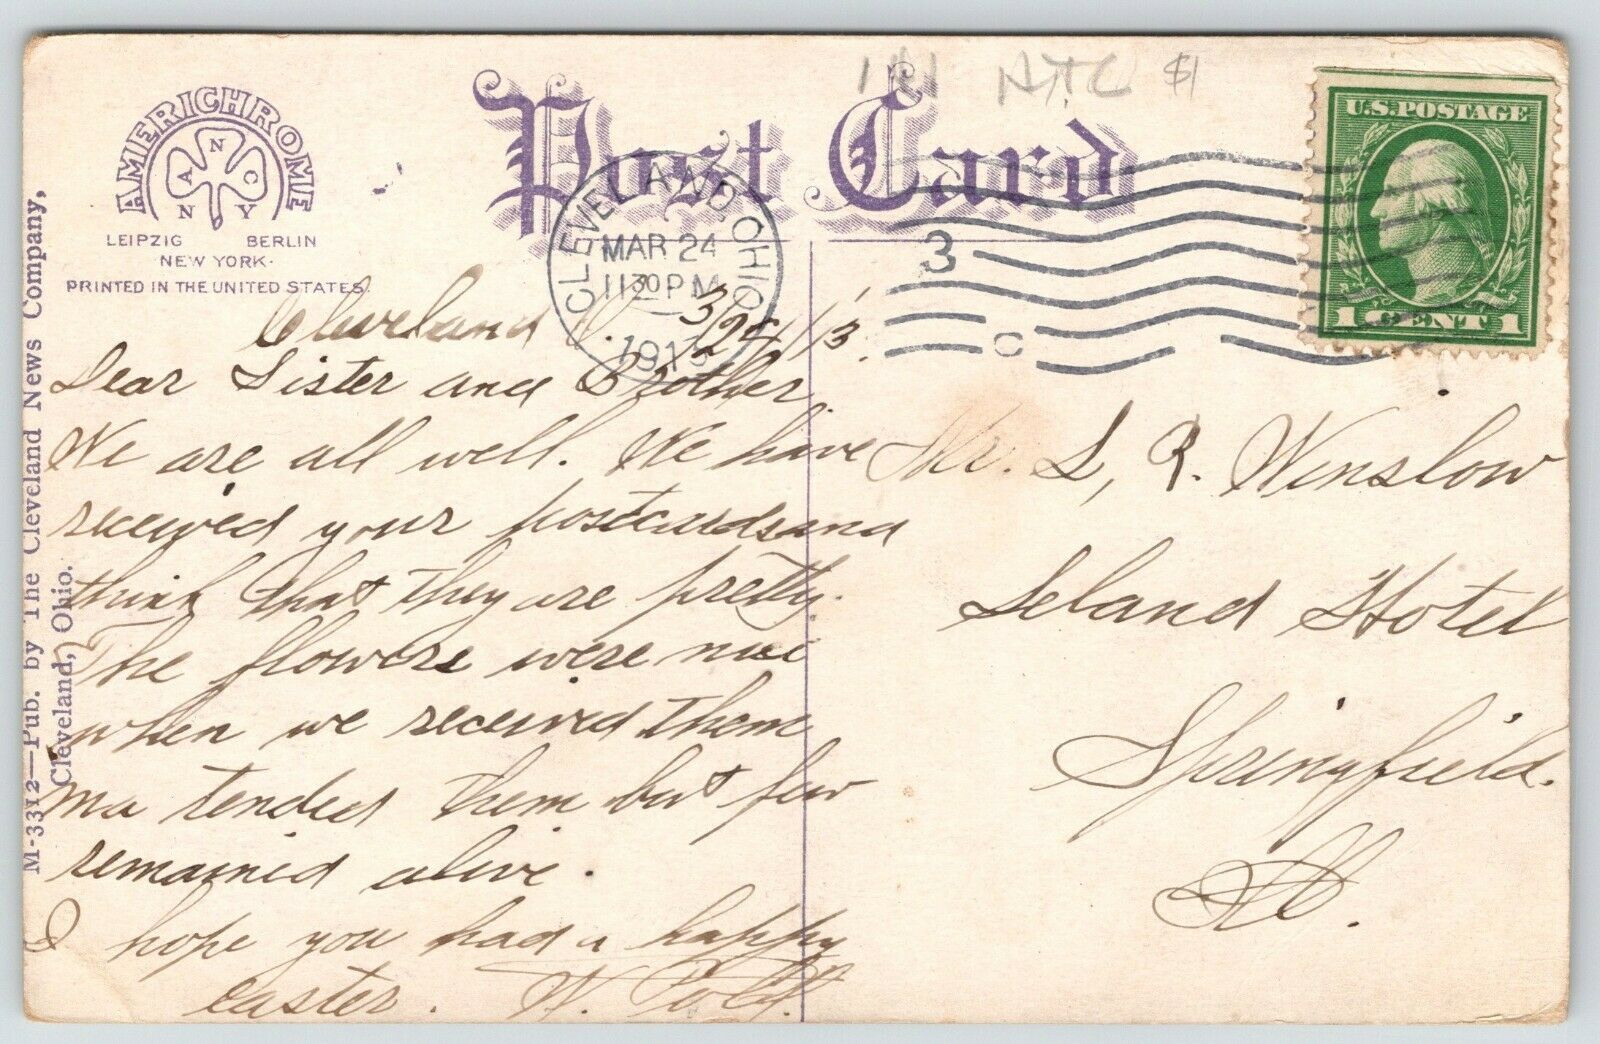 111 NYC $1
AMERICHROME
ANNCNY
LEIPZIG BERLIN
NEW YORK.
PRINTED IN THE UNITED STATES.
Post Card
CLEVELAND, OHIO
MAR 24
11 30 PM
1913
3
C
U.S. POSTAGE
1 CENT 1
M-3312—Pub. by The Cleveland News Company,
Cleveland, Ohio.
Cleveland O. 3/24/13.
Dear Sister and Brother,
We are all well. We have
received your postcards and
think that they are pretty.
The flowers were nice
when we received them
ma tended them but few
remained alive.
I hope you had a happy
easter. W.
Mr. L, R. Winslow
Leland Hotel
Springfield.
Ill.